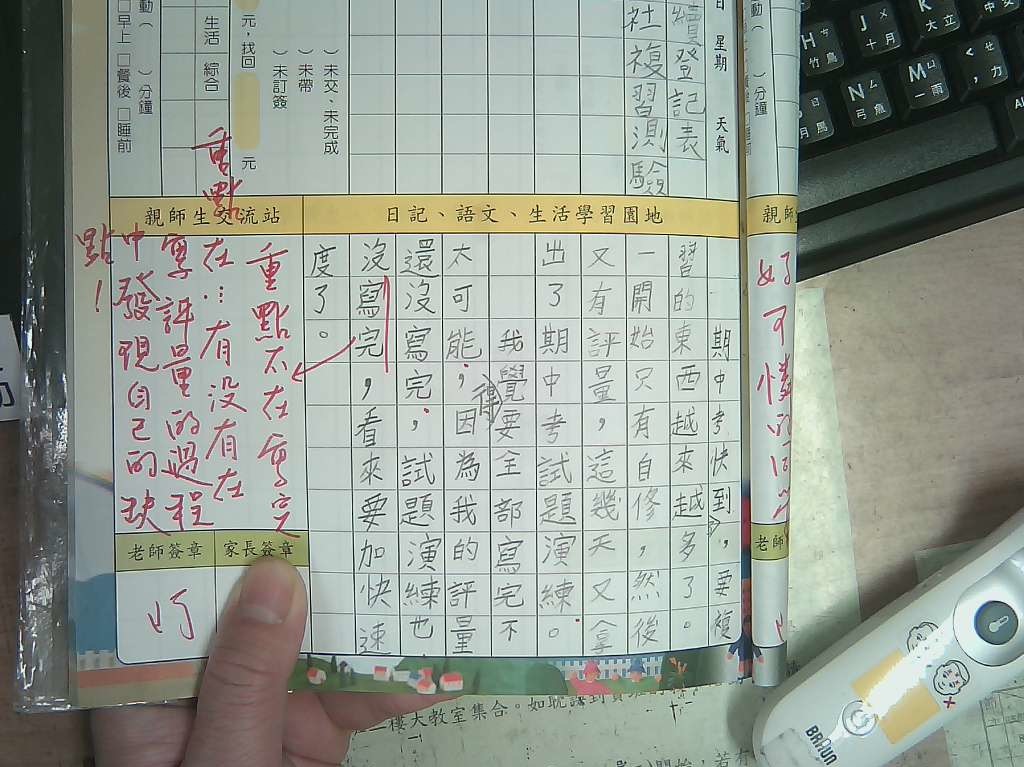 續登記表
社複習測驗
日
星期
天氣
動(
)分鐘
□早上 □餐後 □睡前
生活
綜合
元,找回
元
)未交、未完成
)未帶
)未訂簽
日記、語文、生活學習園地
期中考快到,要複
習的東西越來越多了。
一開始只有自修,然後
又有評量,這幾天又拿
出了期中考試題演練。
我覺得要全部寫完不
太可能,因為我的評量
還沒寫完,試題演練也
沒寫完,看來要加快速
度了。
親師生交流站
重點不在寫完
重點在…有沒有在
寫評量的過程
中發現自己的缺
點!
老師簽章
家長簽章
親師
好可憐的
老師
動(
)分鐘
BRAUN
樓大教室集合。如